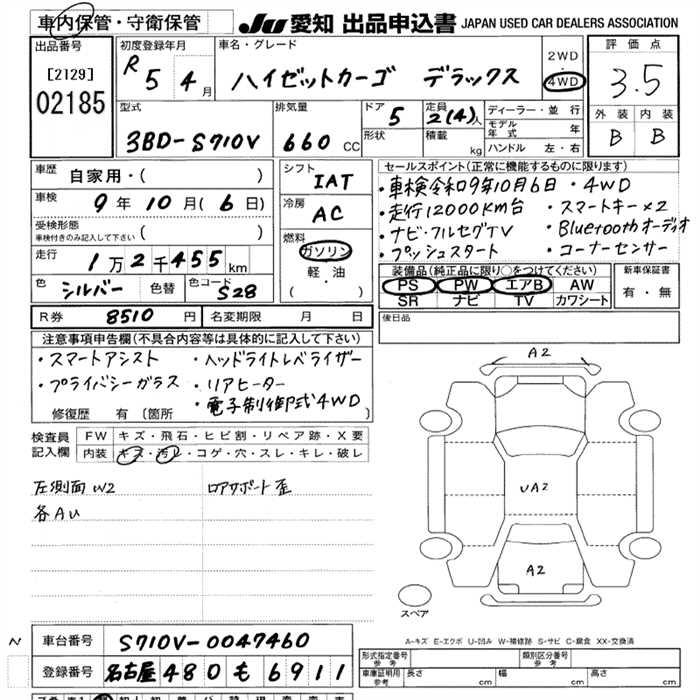 車内保管・守衛保管
JU 愛知 出品申込書 JAPAN USED CAR DEALERS ASSOCIATION
出品番号
[2129]
02185
初度登録年月
R 5 年 4 月
車名・グレード
ハイゼットカーゴ デラックス
2WD
・
4WD
評価点
3.5
外装 内装
B B
型式
3BD-S710V
排気量
660 CC
ドア
5
形状
定員
2(4)人
積載
kg
ディーラー・並行
モデル年式 年
ハンドル 左・右
車歴
自家用・( )
車検
9年 10月( 6日)
受検形態
車検付きのみ記入して下さい ( )
走行
1万2千455km
色
シルバー
色替
色コード
S28
シフト
IAT
冷房
AC
燃料
ガソリン
軽・油
( )
セールスポイント(正常に機能するものに限ります)
・車検令和9年10月6日 ・4WD
・走行12000Km台 ・スマートキー×2
・ナビ・フルセグTV ・Bluetoothオーディオ
・プッシュスタート ・コーナーセンサー
装備品(純正品に限り○をつけてください)
PS PW エアB AW
SR ナビ TV カワシート
新車保証書
有・無
R券 8510円
名変期限 月 日
後日品
注意事項申告欄(不具合内容等は具体的に記入して下さい)
・スマートアシスト ・ヘッドライトレベライザー
・プライバシーガラス ・リアヒーター
・電子制御式4WD
修復歴 有 [箇所 ]
検査員記入欄
FW キズ・飛石・ヒビ割・リペア跡・X要
内装 キズ・汚レ・コゲ・穴・スレ・キレ・破レ
左側面W2 ロアサポート歪
各AU
A2
UA2
A2
スペア
A-キズ E-エクボ U-凹み W-補修跡 S-サビ C-腐食 XX-交換済
車台番号 S710V-0047460
登録番号 名古屋 480 も 6911
形式指定番号
参考
類別区分番号
参考
車庫証明用
参考
長さ cm 幅 cm 高さ cm